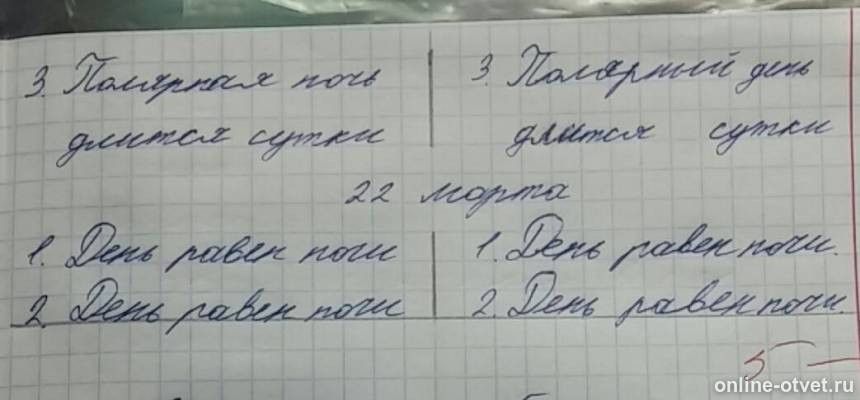 3. Полярная ночь
длится сутки
3. Полярный день
длится сутки
22 марта
1. День равен ночи
2. День равен ночи
1. День равен ночи.
2. День равен ночи.
5-
online-otvet.ru